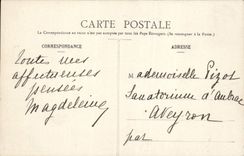 CARTE POSTALE
La Correspondance au recto n'est pas acceptée par tous les Pays Étrangers (Se renseigner à la Poste)
CORRESPONDANCE
ADRESSE
Toutes mes
affectueuses
pensées
Magdeleine
Mademoiselle Pizot
Sanatorium d'Aubrac
Aveyron
par